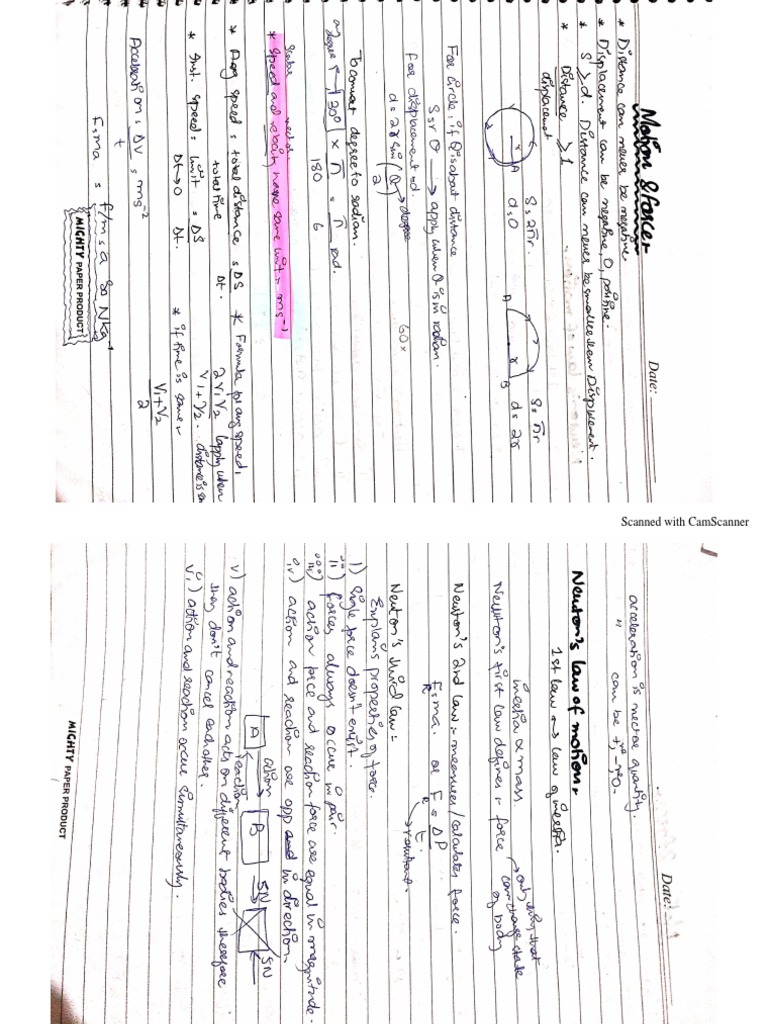 Motion & forces
Date:
* Distance can never be negative.
* Displacement can be negative, 0, positive.
* S ≥ d. Distance can never be smaller than Displacement.
* Distance ≥ 1
displacement
S = 2πr
d = 0
A
r
S = πr
d = 2r
A
r
B
For circle, if θ is about distance
S = rθ → apply when θ is in radian.
For displacement d.
d = 2r sin (θ/2) → degree
60 x
To convert degree to radian.
30° × π/180 = π/6 rad.
Scalar vector
* Speed and velocity have same unit = ms⁻¹
* Avg speed = total distance = ΔS
total time Δt.
* Formula for avg speed,
2v₁v₂ (apply when
v₁+v₂ . distance is
* Inst. speed = limit = ΔS
Δt→0 Δt.
* if time is same =
v₁+v₂
2
Acceleration = ΔV = ms⁻²
t
F = ma = f/m = a so Nkg⁻¹
MIGHTY PAPER PRODUCT
Scanned with CamScanner
Date:
acceleration is vector quantity.
" can be +ve, -ve, 0.
Newton's law of motion =
1st law → law of inertia.
inertia ∝ mass.
Newton's first law defines = force
→ only thing that
can change state
of body
Newton's 2nd law = measures/calculates force.
F = ma. or F = ΔP
t.
→ resultant.
Newton's third law =
Explains properties of force.
i) Single force doesn't exist.
ii) forces always occur in pair.
iii) action force and reaction force are equal in magnitude.
iv) action and reaction are opp in direction.
A
B
action
reaction
5N
5N
v) action and reaction acts on different bodies therefore
they don't cancel eachother.
vi) action and reaction occur simultaneously.
MIGHTY PAPER PRODUCT